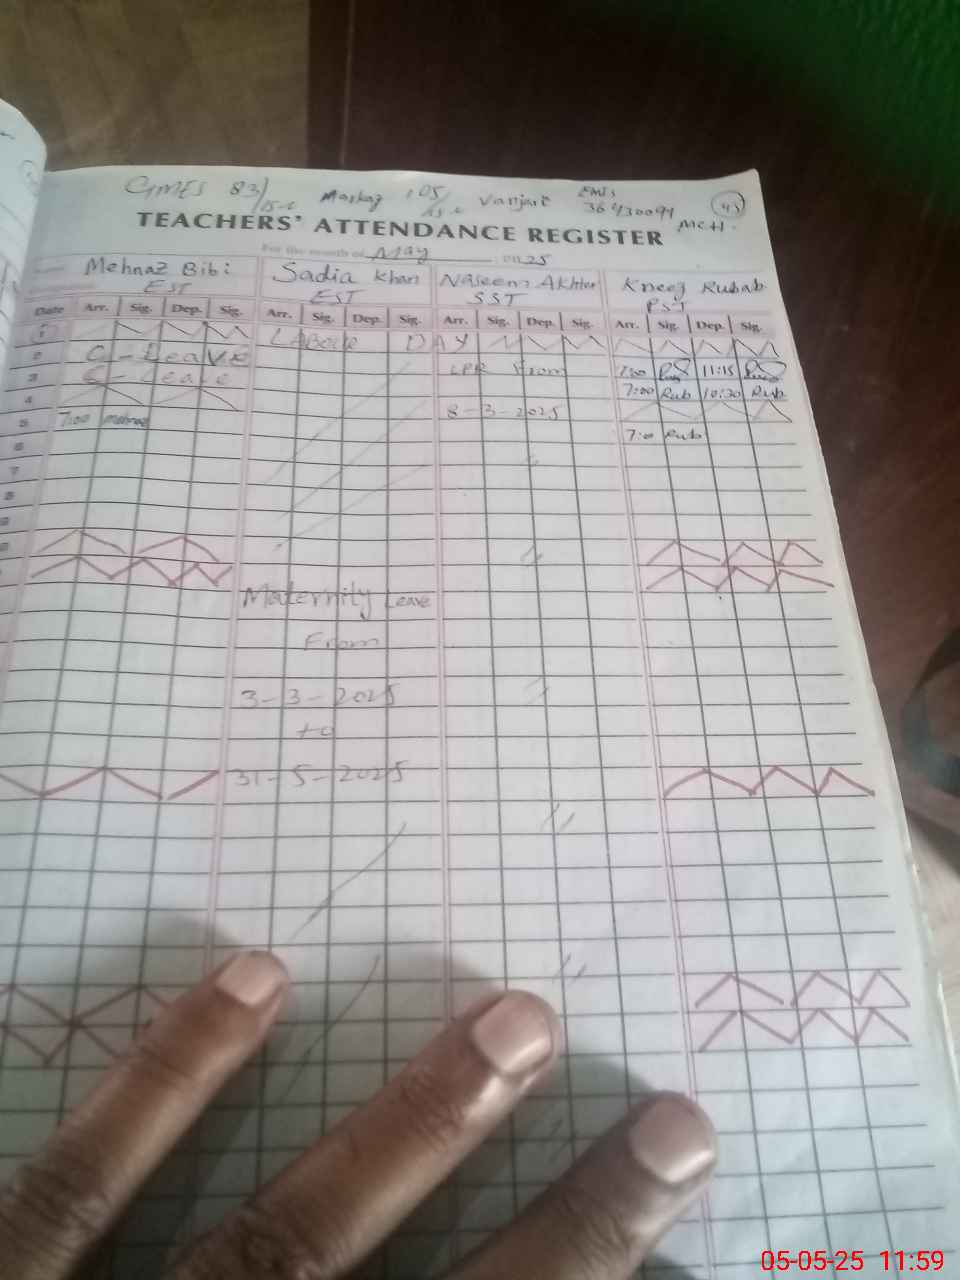 GMES 83/15-L Markaz 105/15-L Vanjari EMIS 36430094 43
MCH.
TEACHERS' ATTENDANCE REGISTER
For the month of May 2025
Mehnaz Bibi Sadia Khan Naseem Akhter Kneez Rubab
EST EST SST PST
Date Arr. Sig. Dep. Sig. Arr. Sig. Dep. Sig. Arr. Sig. Dep. Sig. Arr. Sig. Dep. Sig.
1 LABOUR DAY
2 C-Leave LPR From 7:00 Rub 11:15 Rub
3 C-Leave 7:00 Rub 10:30 Rub
4 8-3-2025
5 7:00 Mehnaz 7:0 Rub
6
7
8
9
Maternity Leave
From
3-3-2025
to
31-5-2025
05-05-25 11:59